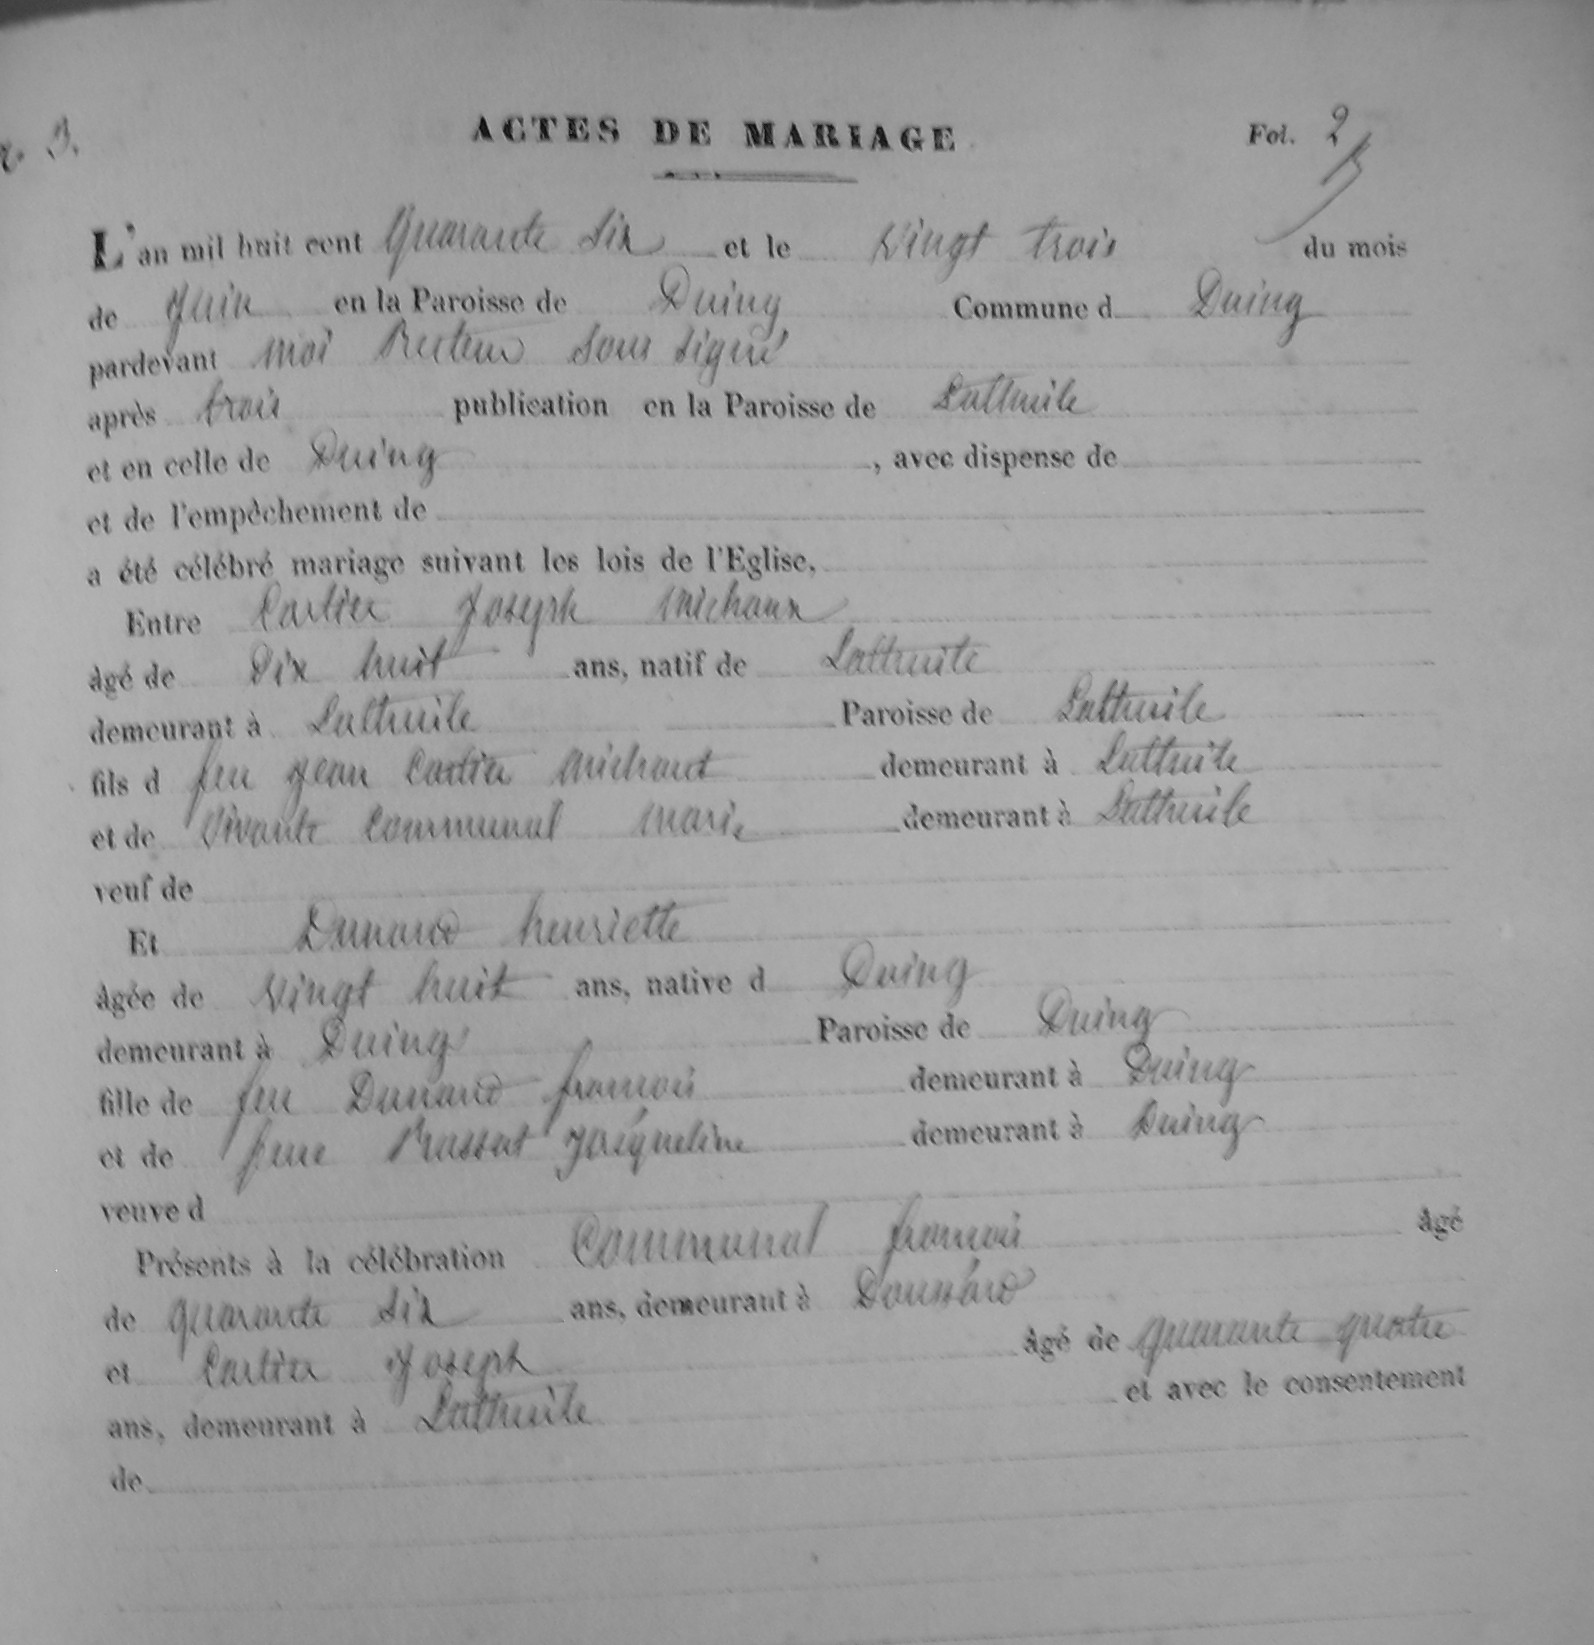 ACTES DE MARIAGE Fol. 2
3.
L'an mil huit cent quarante six et le vingt trois du mois
de juin en la Paroisse de Duing Commune d Duing
pardevant moi Recteur sous signé
après trois publication en la Paroisse de Lathuile
et en celle de Duing, avec dispense de
et de l'empêchement de
a été célébré mariage suivant les lois de l'Eglise,
Entre Cartier Joseph Michaux
âgé de Dix huit ans, natif de Lathuile
demeurant à Lathuile Paroisse de Lathuile
fils d feu Jean Cartier Michaud demeurant à Lathuile
et de vivante Communal Marie demeurant à Lathuile
veuf de
Et Dunand henriette
âgée de vingt huit ans, native d Duing
demeurant à Duing Paroisse de Duing
fille de feu Dunand françois demeurant à Duing
et de feue Brassat Jacqueline demeurant à Duing
veuve d
Présents à la célébration Communal françois âgé
de quarante six ans, demeurant à Doussard
et Cartier Joseph âgé de quarante quatre
ans, demeurant à Lathuile et avec le consentement
de